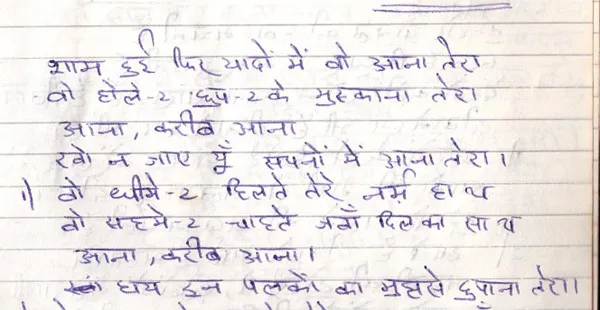 शाम हुई फिर यादों में वो आना तेरा
वो हौले-2 छुप-2 के मुस्काना तेरा
आना, करीब आना
खो न जाए यूँ सपनों में आना तेरा।
1) वो धीमे-2 हिलते तेरे नर्म हाथ
वो सहमे-2 चाहते जवाँ दिल का साथ
आना, करीब आना।
हाय इन पलकों का मुझसे छुपाना तेरा।